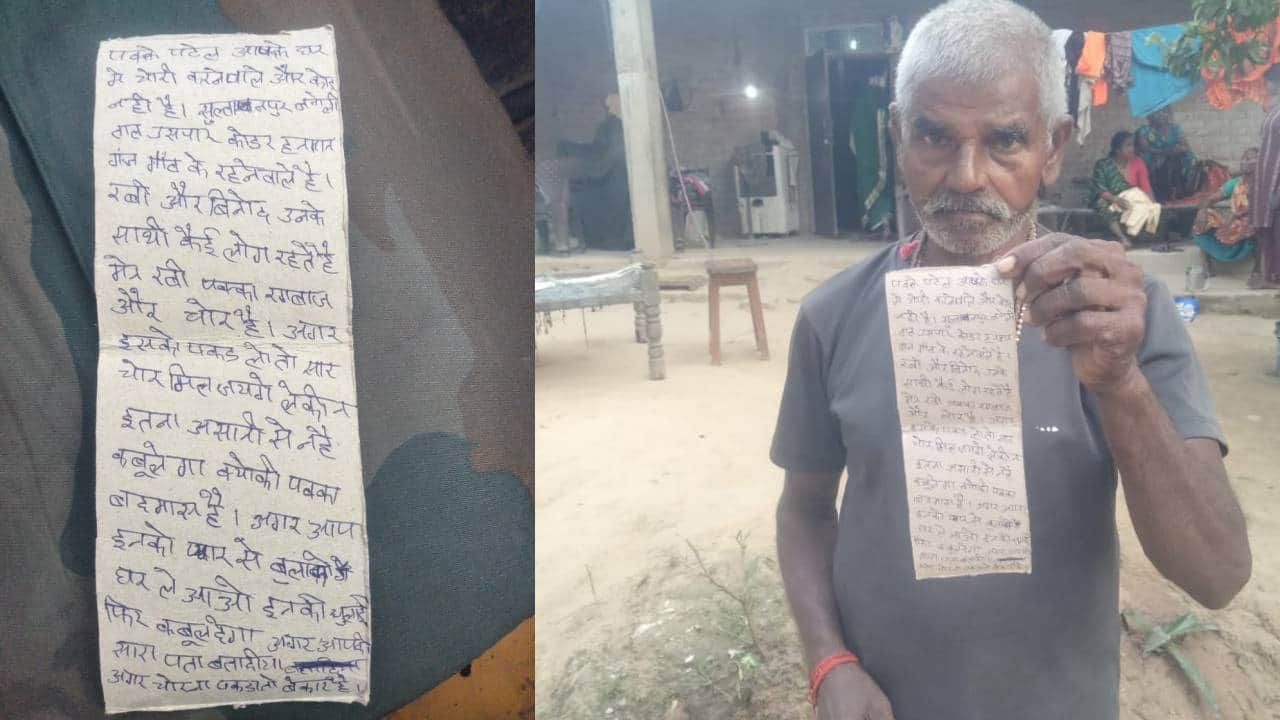 पक्के पटेल आपके घर
मे चोरी करनेवाले और कोई
नही है। सुल्तानपुर
के रहेनेवाले है।
रवी और विनोद उनके
साथी कैई लोग रहेतेहै
मेन रवी पक्का
और चोर है। अगर
इसको पकड लो तो सार
चोर मिल जयगे लेकीन
इतना असानी से नहै
कबूलेगा क्योकी पक्का
बदमास है। अगर आप
इनको प्यार से
घर ले आओ इनको
फिर कबूलदेगा अगर आपको
सारा पता बतादीया
अगर चोरना पकडातो बेकार है।